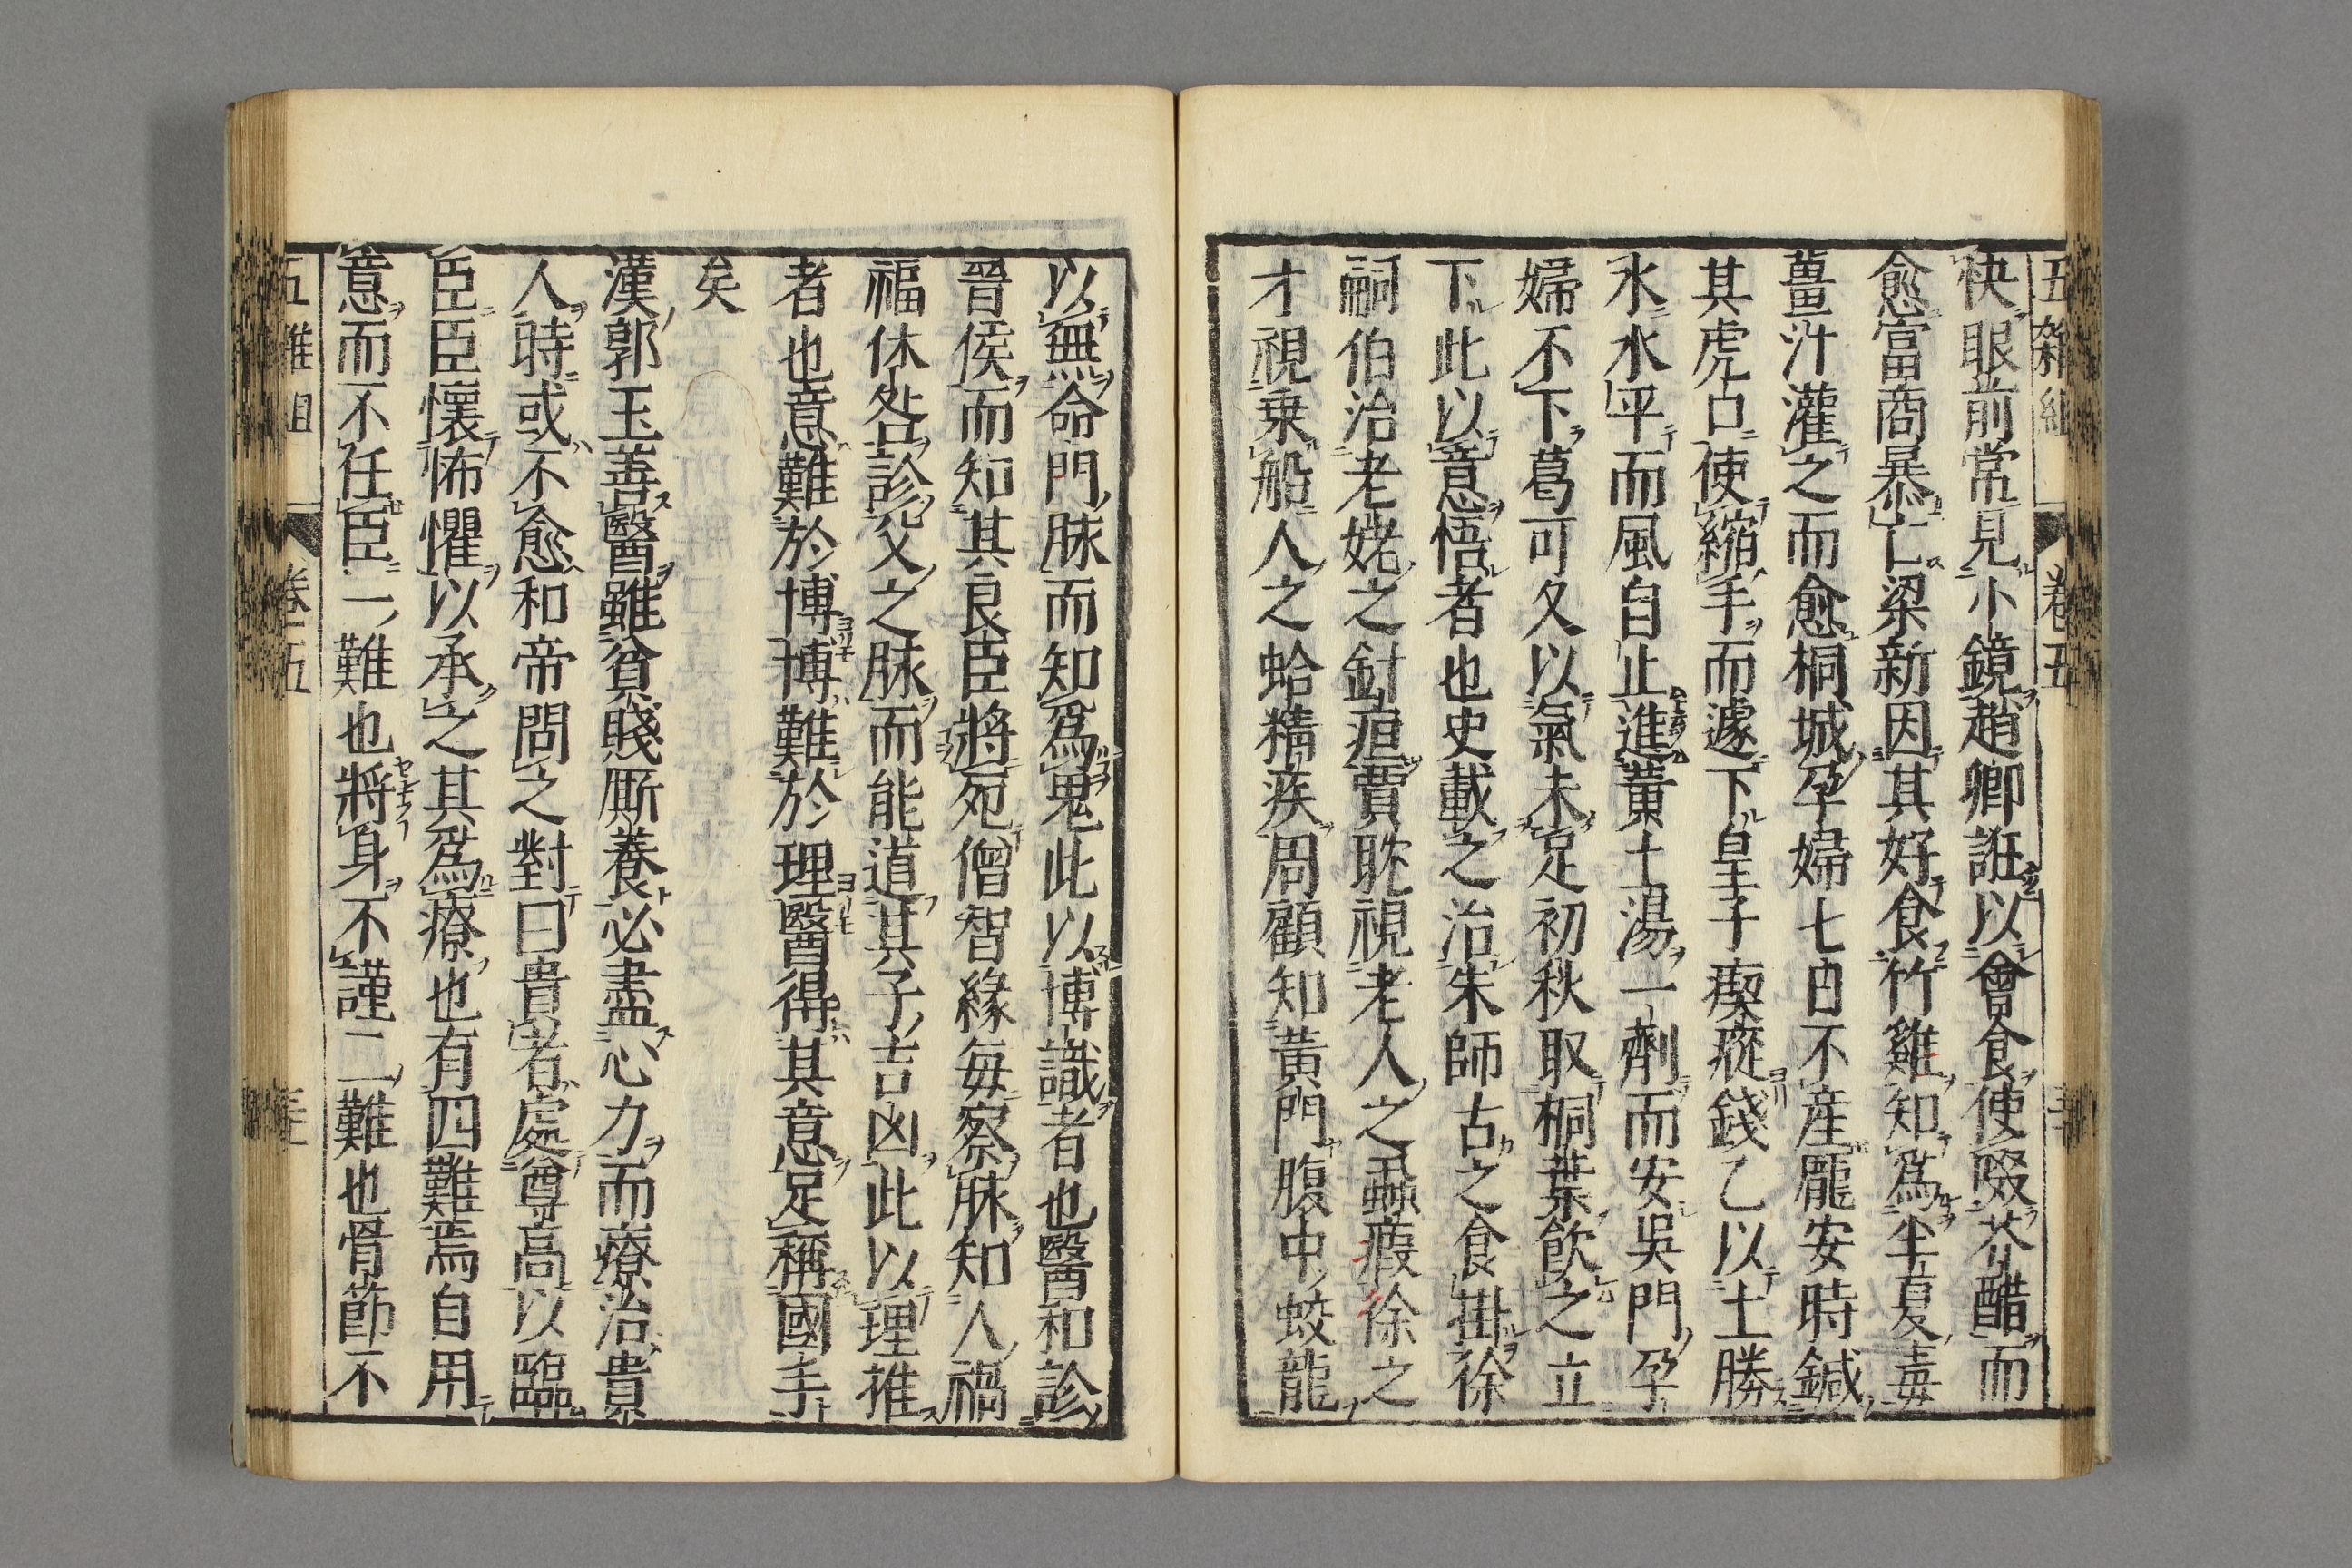 五雜組 卷五
袂眼前常見小鏡趙卿誑以會食使啜芥醋而
愈富商暴亡梁新因其好食竹雞知爲半夏毒
薑汁灌之而愈桐城孕婦七日不産龐安時鍼
其虎口使縮手而遽下皇子瘈瘲錢乙以土勝
水水平而風自止進黃土湯一劑而安吳門孕
婦不下葛可久以氣未足初秋取桐葉飲之立
下此以意悟者也史載之治朱師古之食掛徐
嗣伯治老姥之釘疽賈耽視老人之蝨瘕徐之
才視乗船人之蛤精疾周顧知黃門腹中蛟龍
以無命門脉而知爲鬼此以博識者也醫和診
晉侯而知其良臣將死僧智緣每察脉知人禍
福休咎診父之脉而能道其子吉凶此以理推
者也意難於博博難於理醫得其意足稱國手
矣
漢郭玉善醫雖貧賤厮養必盡心力而療治貴
人時或不愈和帝問之對曰貴者處尊高以臨
臣臣懷怖懼以承之其爲療也有四難焉自用
意而不任臣一難也將身不謹二難也骨節不
五雜組 卷五